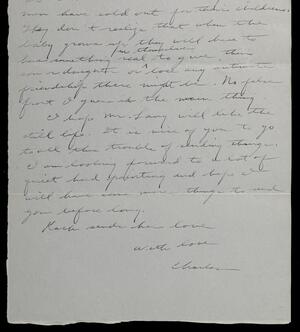 men have sold out for their children.
They don't realize that when the
baby grows up they will have to
be something real to give, their
in themselves
son or daughter or lose any
friendship there might be. No false
front I guess is the main thing.
I hope Mr. Lavy will like the
still life. It is nice of you to go
to all the trouble of sending things.
I am looking forward to a lot of
quiet hard painting and hope I
will have some more things to send
you before long.
Karla sends her love
With love
Charles